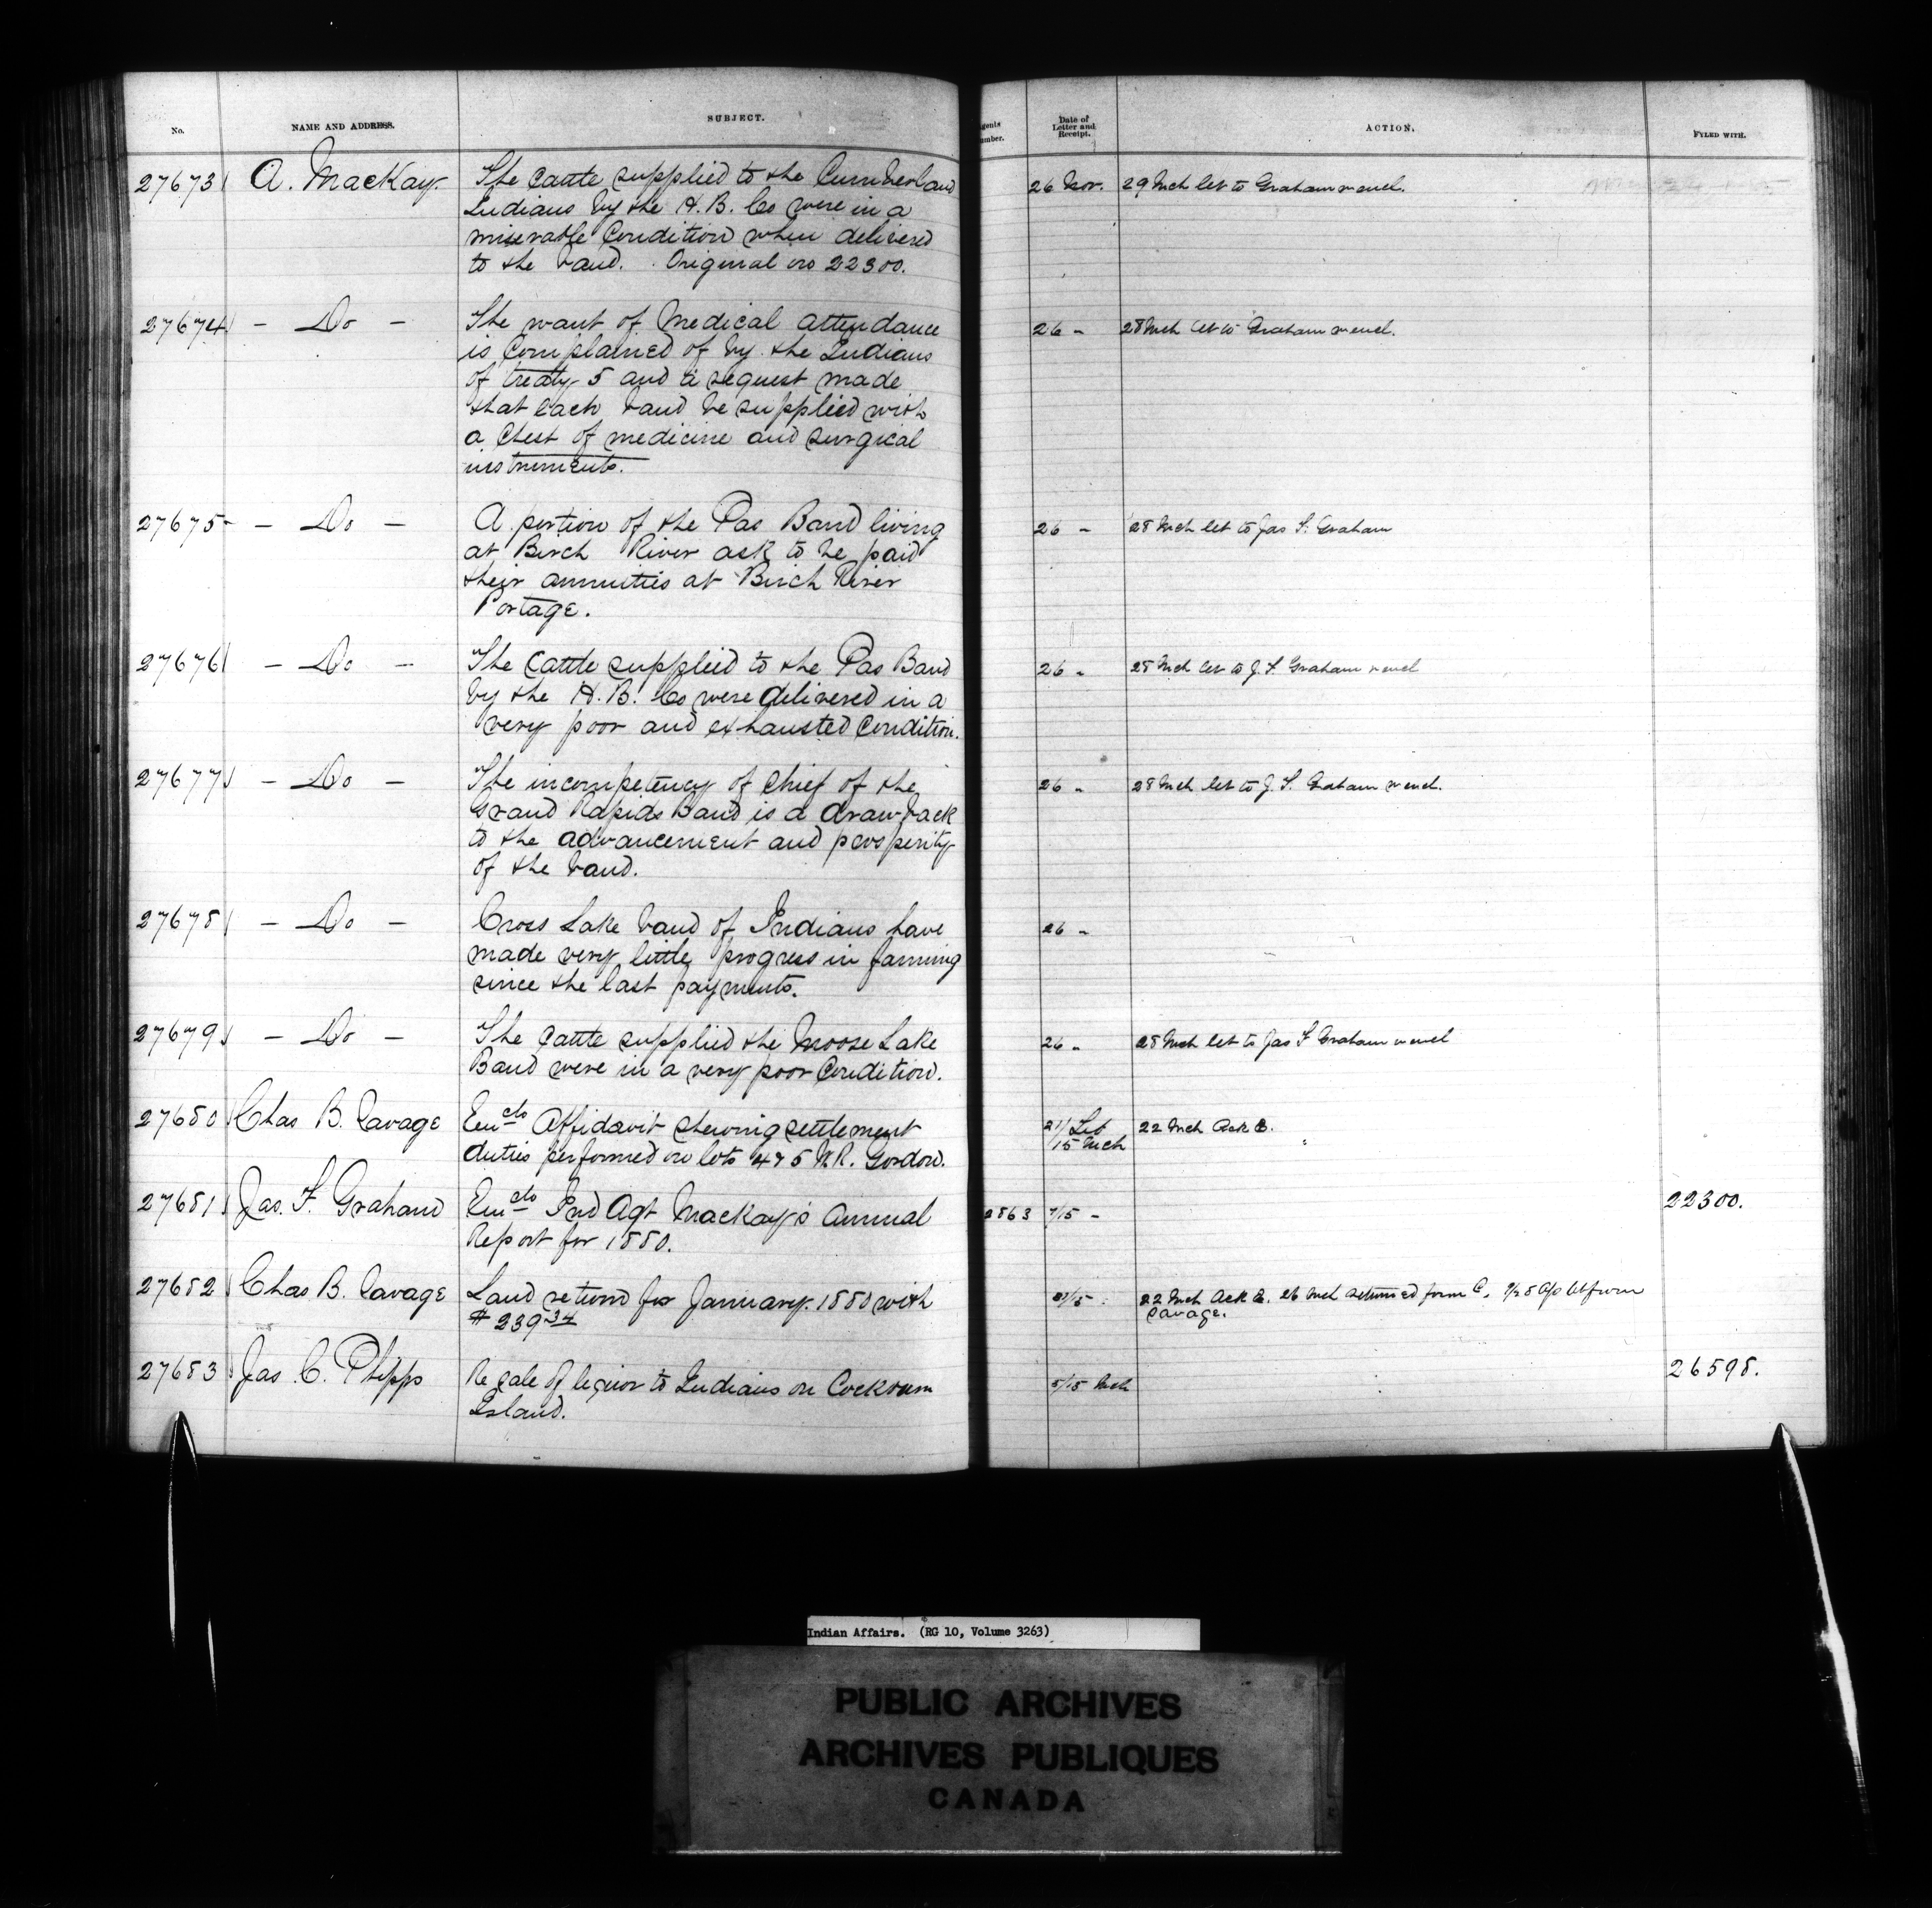 No. NAME AND ADDRESS. SUBJECT. Agents Number. Date of Letter and Receipt. ACTION. FYLED WITH.
27673 A. MacKay. The cattle supplied to the Cumberland 26 Nov. 29 Mch let to Graham w encl.
Indians by the H. B. Co were in a
miserable condition when delivered
to the band. Original in 22300.
27674 - Do - The want of medical attendance 26 " 28 Mch let to Graham w encl.
is complained of by the Indians
of treaty 5 and a request made
that each band be supplied with
a chest of medicine and surgical
instruments.
27675 - Do - A portion of the Pas Band living 26 " 28 Mch let to Jas F. Graham
at Birch River ask to be paid
their annuities at Birch River
Portage.
27676 - Do - The cattle supplied to the Pas Band 26 " 28 Mch let to J. F. Graham w encl
by the H. B. Co were delivered in a
very poor and exhausted condition.
27677 - Do - The incompetency of Chief of the 26 " 28 Mch let to J. F. Graham w encl.
Grand Rapids Band is a drawback
to the advancement and prosperity
of the band.
27678 - Do - Cross Lake band of Indians have 26 "
made very little progress in farming
since the last payments.
27679 - Do - The cattle supplied the Moose Lake 26 " 28 Mch let to Jas F Graham w encl
Band were in a very poor condition.
27680 Chas B. Savage Encls Affidavit shewing settlement 21/ Feb 22 Mch Ack R.
duties performed on lots 4 & 5 R.R. Gordon. /15 Mch
27681 Jas. F. Graham Encls Ind Agt Mackay's Annual 2863 7/15 - 22300.
Report for 1880.
27682 Chas B. Savage Land return for January. 1880 with 21/15 . 22 Mch Ack R. 26 Mch returned form C.
$239.34 Savage.
27683 Jas. C. Phipps Re sale of liquor to Indians on Cockburn 5/15 Mch 26598.
Island.
Indian Affairs. (RG 10, Volume 3263)
PUBLIC ARCHIVES
ARCHIVES PUBLIQUES
CANADA